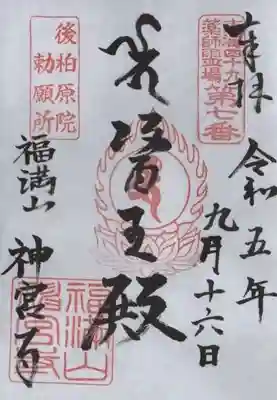 奉拝
四十九
薬師霊場第七番
令和五年
九月十六日
醫王殿
後柏原院
勅願所
福満山
神宮寺
福満山
神宮寺